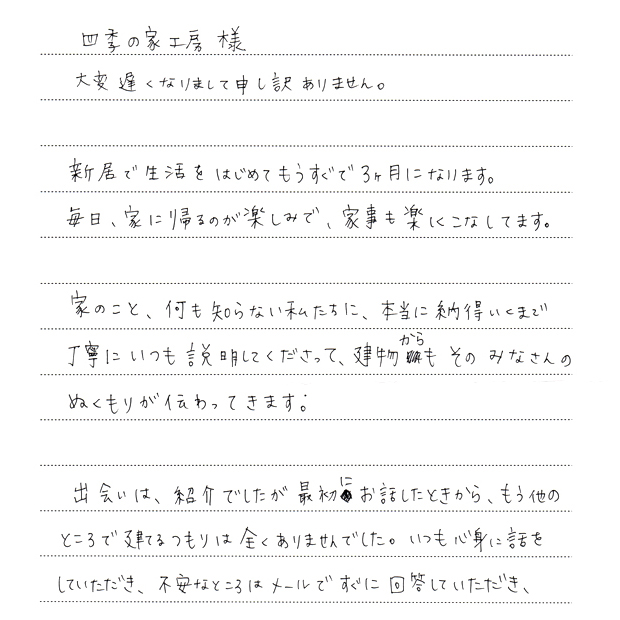 四季の家工房 様
大変遅くなりまして申し訳ありません。
新居で生活をはじめてもうすぐで3ヶ月になります。
毎日、家に帰るのが楽しみで、家事も楽しくこなしてます。
家のこと、何も知らない私たちに、本当に納得いくまで
丁寧にいつも説明してくださって、建物からもそのみなさんの
ぬくもりが伝わってきます。
出会いは、紹介でしたが最初にお話したときから、もう他の
ところで建てるつもりは全くありませんでした。いつも心身に話を
していただき、不安なところはメールですぐに回答していただき、